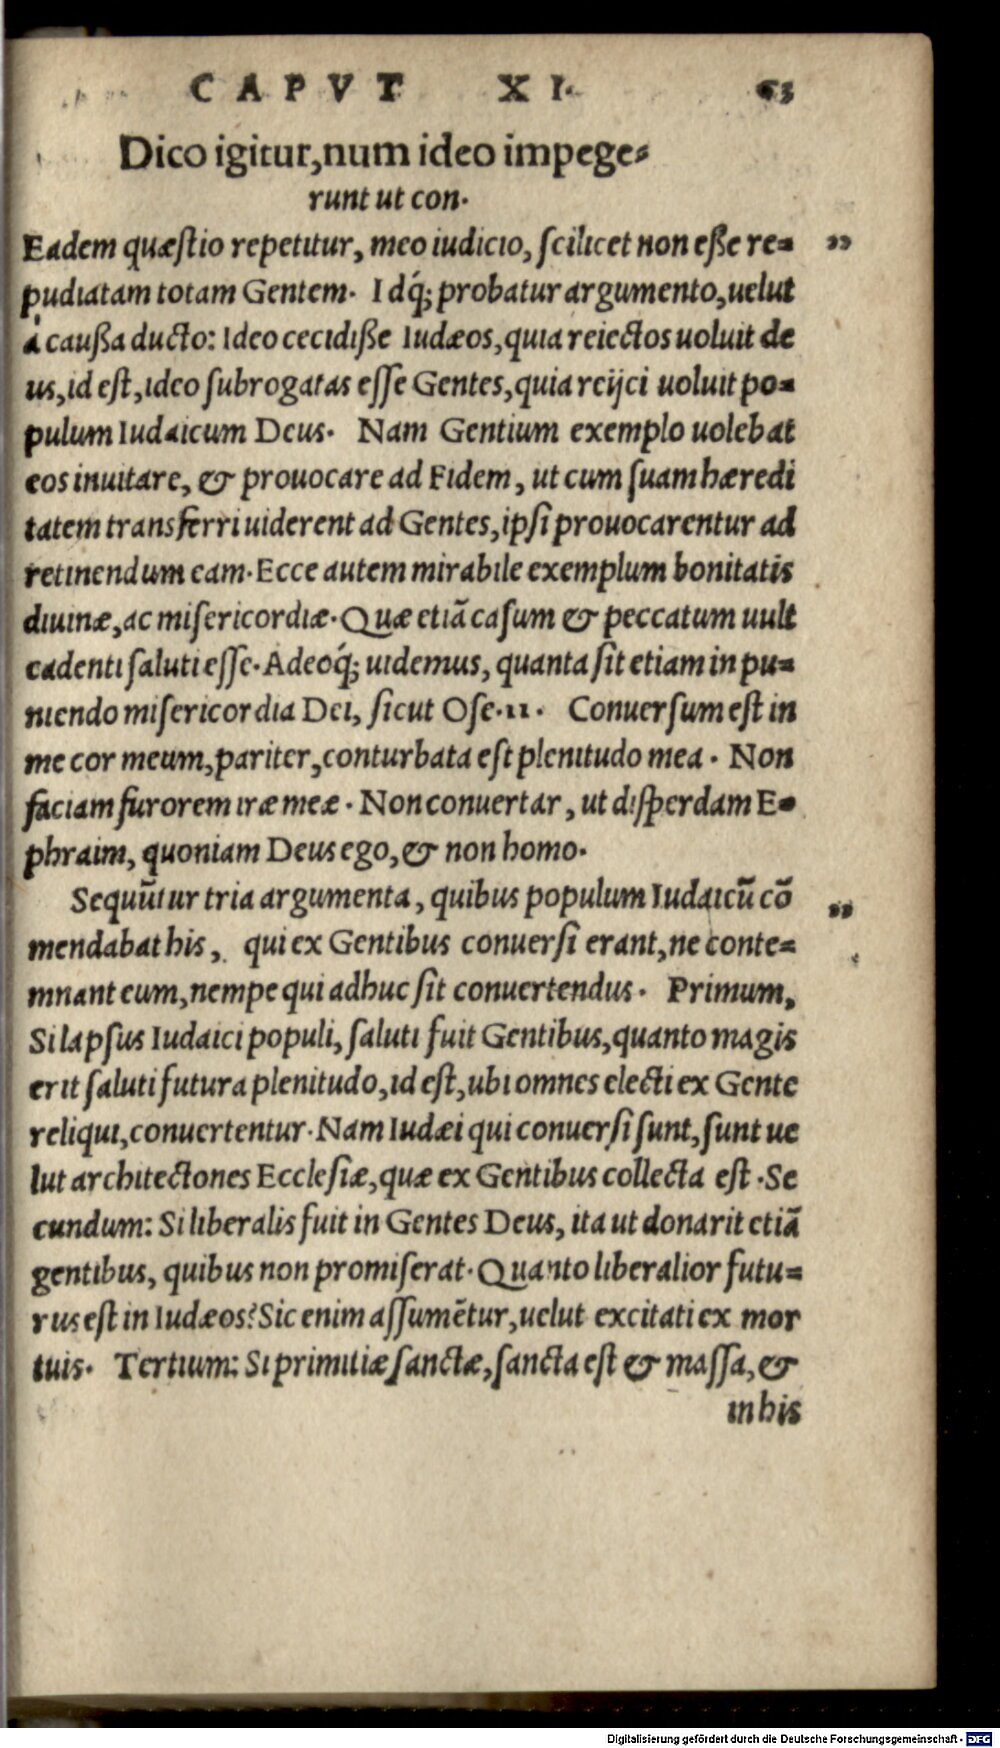 CAPVT XI. 63
Dico igitur, num ideo impege-
runt ut con.
Eadem quæstio repetitur, meo iudicio, scilicet non esse re- „
pudiatam totam Gentem. Idq́; probatur argumento, uelut
à caußa ducto: Ideo cecidiße Iudæos, quia reiectos uoluit de
us, id est, ideo subrogatas esse Gentes, quia reijci uoluit po-
pulum Iudaicum Deus. Nam Gentium exemplo uolebat
eos inuitare, & prouocare ad Fidem, ut cum suam hæredi
tatem transferri uiderent ad Gentes, ipsi prouocarentur ad
retinendum eam. Ecce autem mirabile exemplum bonitatis
diuinæ, ac misericordiæ. Quæ etiã casum & peccatum uult
cadenti saluti esse. Adeoq́; uidemus, quanta sit etiam in pu-
niendo misericordia Dei, sicut Ose. 11. Conuersum est in
me cor meum, pariter, conturbata est plenitudo mea. Non
faciam furorem iræ meæ. Non conuertar, ut disperdam E-
phraim, quoniam Deus ego, & non homo.
Sequũtur tria argumenta, quibus populum Iudaicũ cõ „
mendabat his, qui ex Gentibus conuersi erant, ne conte-
mnant eum, nempe qui adhuc sit conuertendus. Primum,
Si lapsus Iudaici populi, saluti fuit Gentibus, quanto magis
erit saluti futura plenitudo, id est, ubi omnes electi ex Gente
reliqui, conuertentur. Nam Iudæi qui conuersi sunt, sunt ue
lut architectones Ecclesiæ, quæ ex Gentibus collecta est. Se
cundum: Si liberalis fuit in Gentes Deus, ita ut donarit etiã
gentibus, quibus non promiserat. Quanto liberalior futu-
rus est in Iudæos? Sic enim assumẽtur, uelut excitati ex mor
tuis. Tertium: Si primitiæ sanctæ, sancta est & massa, &
in his
Digitalisierung gefördert durch die Deutsche Forschungsgemeinschaft - DFG